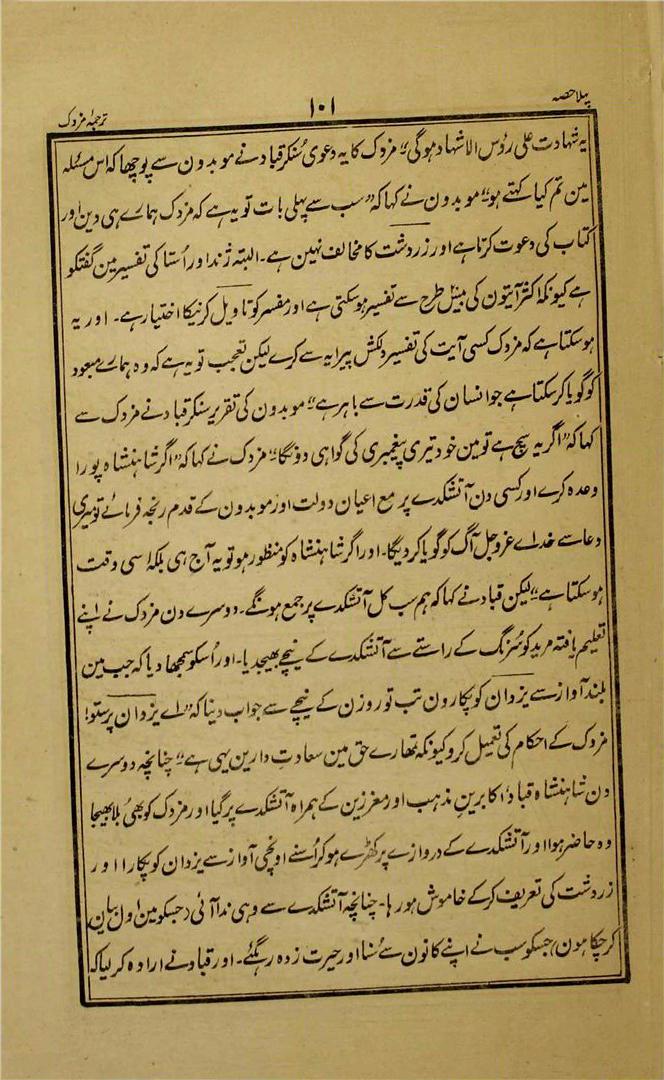 پہلا حصہ
۱۰۱
ترجمۂ مزدک
یہ شہادت علی رؤس الاشہاد ہوگی" مزدک کا یہ دعویٰ سُنکر قباد نے موبدون سے پوچھا کہ اس مسئلہ
مین تم کیا کہتے ہو" موبدون نے کہا کہ "سب سے پہلی بات تو یہ ہے کہ مزدک ہمارے ہی دین اور
کتاب کی دعوت کرتا ہے اور زردشت کا مخالف نہین ہے۔ البتہ ژند اور اُستا کی تفسیر مین گفتگو
ہے کیونکہ اکثر آیتون کی بیسل طرح سے تفسیر ہوسکتی ہے اور مفسر کو تاویل کرنیکا اختیار ہے۔ اور یہ
ہوسکتا ہے کہ مزدک کسی آیت کی تفسیر دلکش پیرایہ سے کرے لیکن تعجب تو یہ ہے کہ وہ ہمارے معبود
کو گویا کرسکتا ہے جو انسان کی قدرت سے باہر ہے" موبدون کی تقریر سنکر قباد نے مزدک سے
کہا کہ "اگر یہ سچ ہے تو مین خود تیری پیغمبری کی گواہی دونگا" مزدک نے کہا کہ "اگر شاہنشاہ پورا
وعدہ کرے اور کسی دن آتشکدے پر مع اعیان دولت اور موبدون کے قدم رنجہ فرمائے تو میری
دعا سے خداے عزوجل آگ کو گویا کردیگا۔ اور اگر شاہنشاہ کو منظور ہو تو یہ آج ہی بلکہ اسی وقت
ہوسکتا ہے" لیکن قباد نے کہا کہ ہم سب کل آتشکدے پر جمع ہونگے۔ دوسرے دن مزدک نے اپنے
تعلیم یافتہ مرید کو سُرنگ کے راستے سے آتشکدے کے نیچے بھیجدیا۔ اور اُسکو سمجھا دیا کہ جب مین
بلند آواز سے یزدان کو پکارون تب تو روزن کے نیچے سے جواب دینا کہ "اے یزدان پرستو!
مزدک کے احکام کی تعمیل کرو کیونکہ تمھارے حق مین سعادتِ دارین یہی ہے" چنانچہ دوسرے
دن شاہنشاہ قباد اکابرینِ مذہب اور معززین کے ہمراہ آتشکدے پر گیا اور مزدک کو بھی بُلا بھیجا
وہ حاضر ہوا اور آتشکدے کے دروازے پر کھڑے ہوکر اُسنے اونچی آواز سے یزدان کو پکارا اور
زردشت کی تعریف کرکے خاموش ہو رہا۔ چنانچہ آتشکدے سے وہی ندا آئی (جسکو مین اول بیان
کرچکا ہون) جسکو سب نے اپنے کانون سے سُنا اور حیرت زدہ رہگئے۔ اور قباد نے ارادہ کرلیا کہ